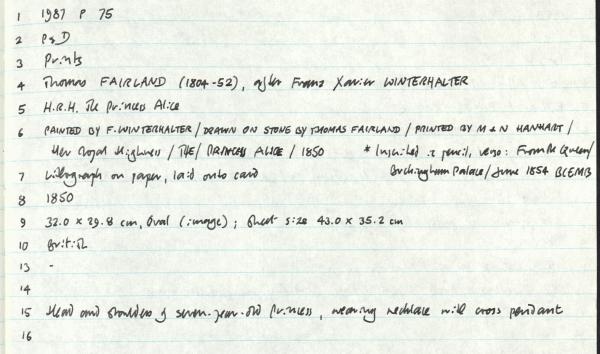 1 1987 P 75
2 P&D
3 Prints
4 Thomas FAIRLAND (1804-52), after Franz Xavier WINTERHALTER
5 H.R.H. The Princess Alice
6 PAINTED BY F. WINTERHALTER / DRAWN ON STONE BY THOMAS FAIRLAND / PRINTED BY M & N HANHART /
Her Royal Highness / THE / PRINCESS ALICE / 1850 * Inscribed in pencil, verso: From the Queen /
7 Lithograph on paper, laid onto card Buckingham Palace / June 1854
8 1850
9 32.0 x 29.8 cm, Oval (image); Sheet size 43.0 x 35.2 cm
10 British
13 -
14
15 Head and shoulders of seven-year-old Princess, wearing necklace with cross pendant
16